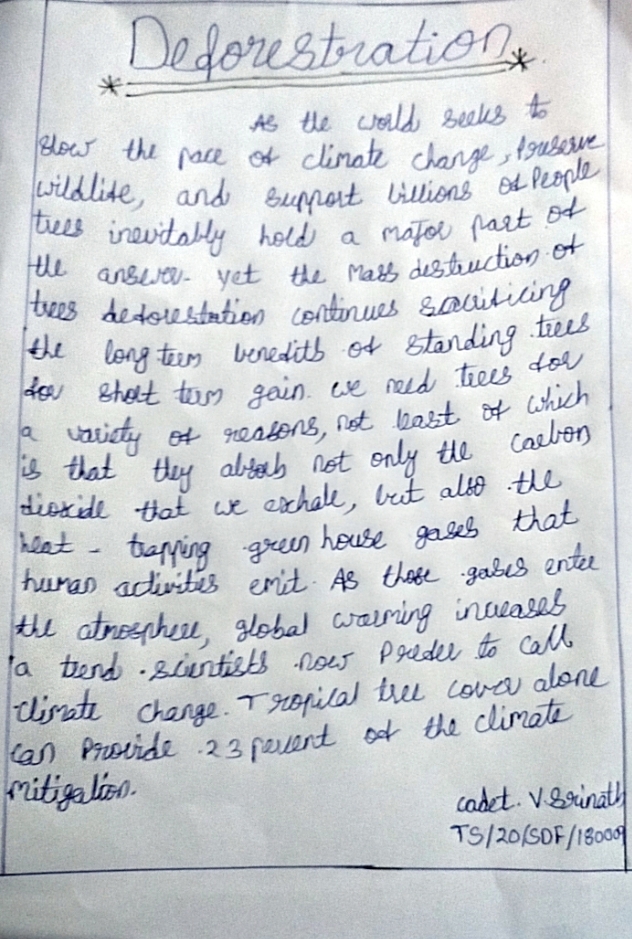 Deforestration
As the world seeks to
slow the pace of climate change, Preserve
wildlife, and support billions of People
trees inevitably hold a major part of
the answer- yet the Mass destruction of
trees deforestation continues sacrificing
the long term benefits of standing trees
for short term gain. we need trees for
a variety of reasons, not least of which
is that they absorb not only the carbon
dioxide that we exhale, but also the
heat - trapping green house gases that
human activities emit. As those gases enter
the atmosphere, global warming increases
a trend scientists now Prefer to call
climate change. Tropical tree cover alone
can Provide 23 percent of the climate
mitigation.
cadet. V. Srinath
TS/20/SDF/180009